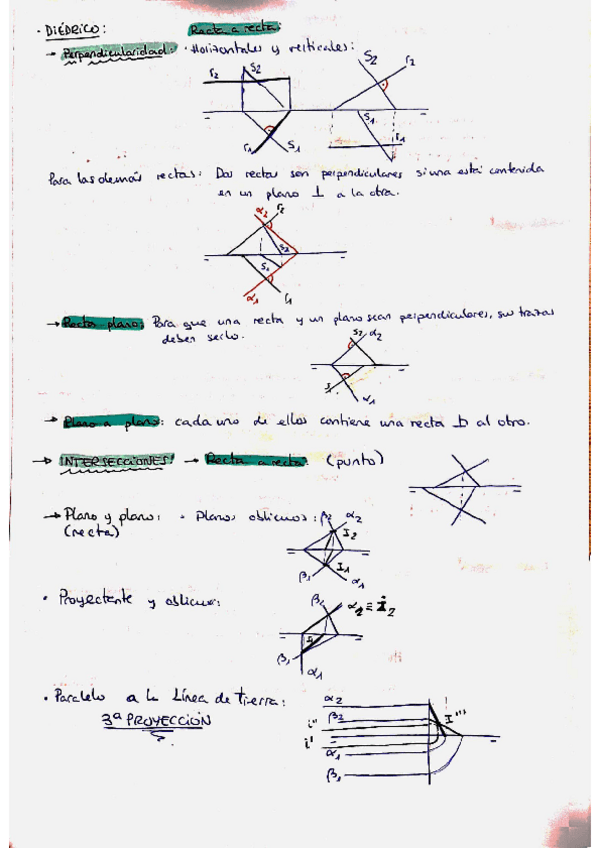 · DIÉDRICO: Recta a recta:
→ Perpendicularidad: · Horizontales y verticales:
r2 S2 S2 r2
r1 S1 S1 r1
Para las demás rectas: Dos rectas son perpendiculares si una está contenida
en un plano ⊥ a la otra.
α2 r2
S2
S1
α1 r1
→ Recta plano: Para que una recta y un plano sean perpendiculares, sus trazas
deben serlo.
S2 α2
S1 α1
→ Plano a plano: cada uno de ellos contiene una recta ⊥ al otro.
→ INTERSECCIONES: → Recta a recta: (punto)
→ Plano y plano: · Planos oblicuos: β2 α2
(recta)
I2
I1
β1 α1
· Proyectante y oblicuo: β2 α2 ≡ i2
β1
α1
· Paralelo a la Línea de tierra:
3ª PROYECCIÓN
α2
β2
i'' I'''
i'
α1
β1